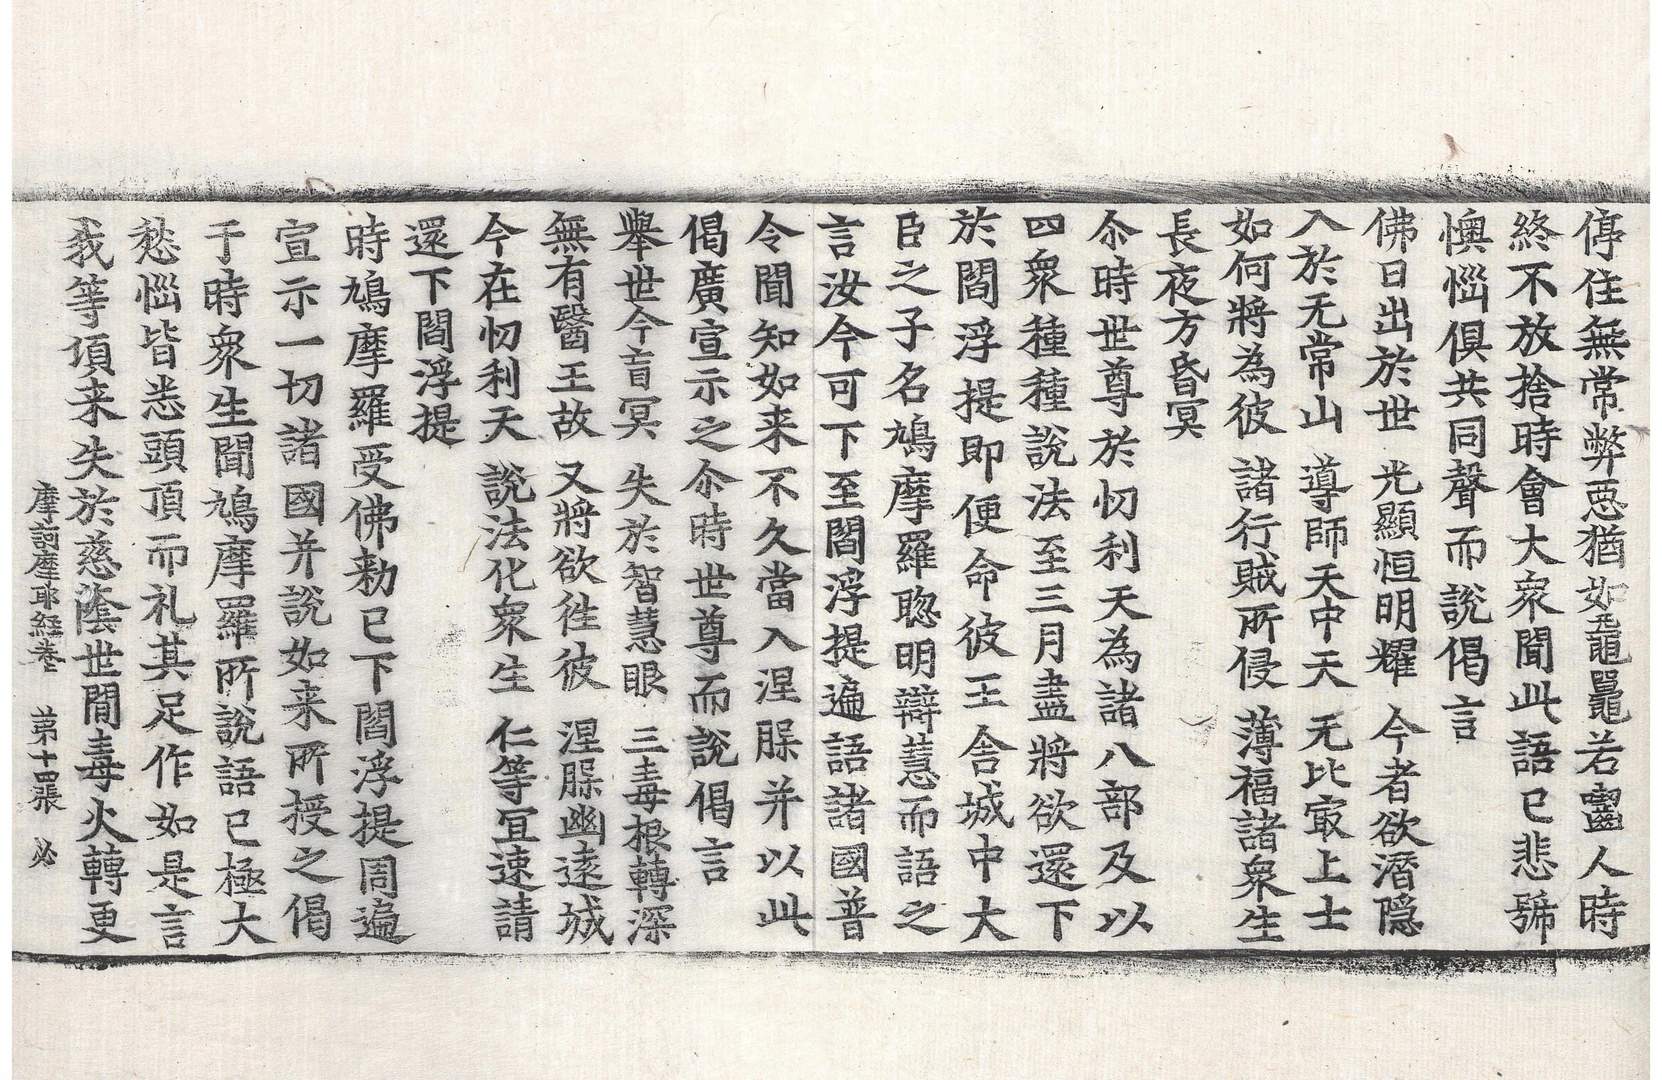 停住無常弊惡猶如黿鼉若齧人時
終不放捨時會大衆聞此語已悲號
懊惱俱共同聲而說偈言
佛日出於世 光顯恒明耀 今者欲潛隱
入於无常山 導師天中天 无比㝡上士
如何將為彼 諸行賊所侵 薄福諸衆生
長夜方昏冥
尒時世尊於忉利天為諸八部及以
四衆種種說法至三月盡將欲還下
於閻浮提即便命彼王舍城中大
臣之子名鳩摩羅聦明辯慧而語之
言汝今可下至閻浮提遍語諸國普
令聞知如来不久當入涅槃并以此
偈廣宣示之尒時世尊而說偈言
舉世今盲冥 失於智慧眼 三毒根轉深
無有醫王故 又將欲往彼 涅槃幽遠城
今在忉利天 說法化衆生 仁等宜速請
還下閻浮提
時鳩摩羅受佛勑已下閻浮提周遍
宣示一切諸國并說如来所授之偈
于時衆生聞鳩摩羅所說語已極大
愁惱皆悉頭頂而礼其足作如是言
我等頃来失於慈蔭世間毒火轉更
摩訶摩耶経卷上 第十四張 必